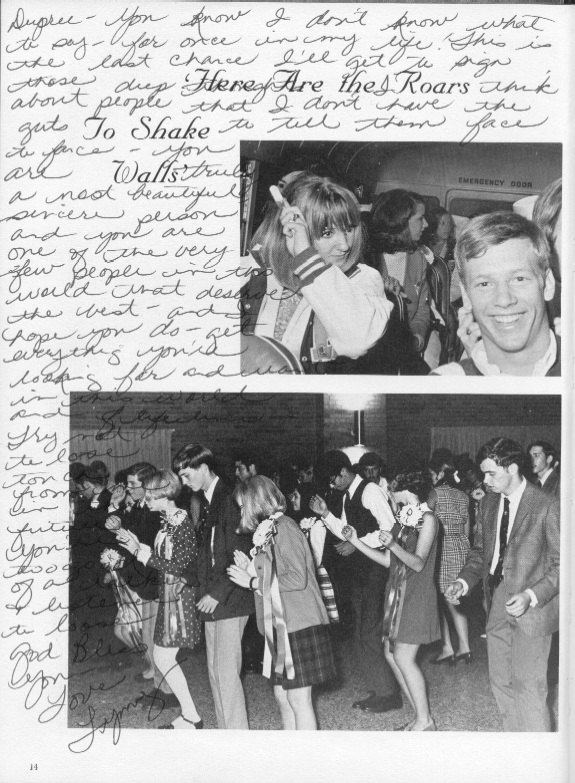 Dupree - You know I don't know what
to say - for once in my life! This is
the last chance I'll get to sign
those deep things I think
about people that I don't have the
guts to tell them face
to face - You
are truly
a most beautiful
sincere person
and you are
one of the very
few people in this
world that deserve
the best - and I
hope you do - get
everything you're
looking for and want
in this world
and
Try not
to loose
from
in
future
You're
of a
I
to loose
God Bless
You
Love
Here Are the Roars
To Shake
Walls!
EMERGENCY DOOR
14